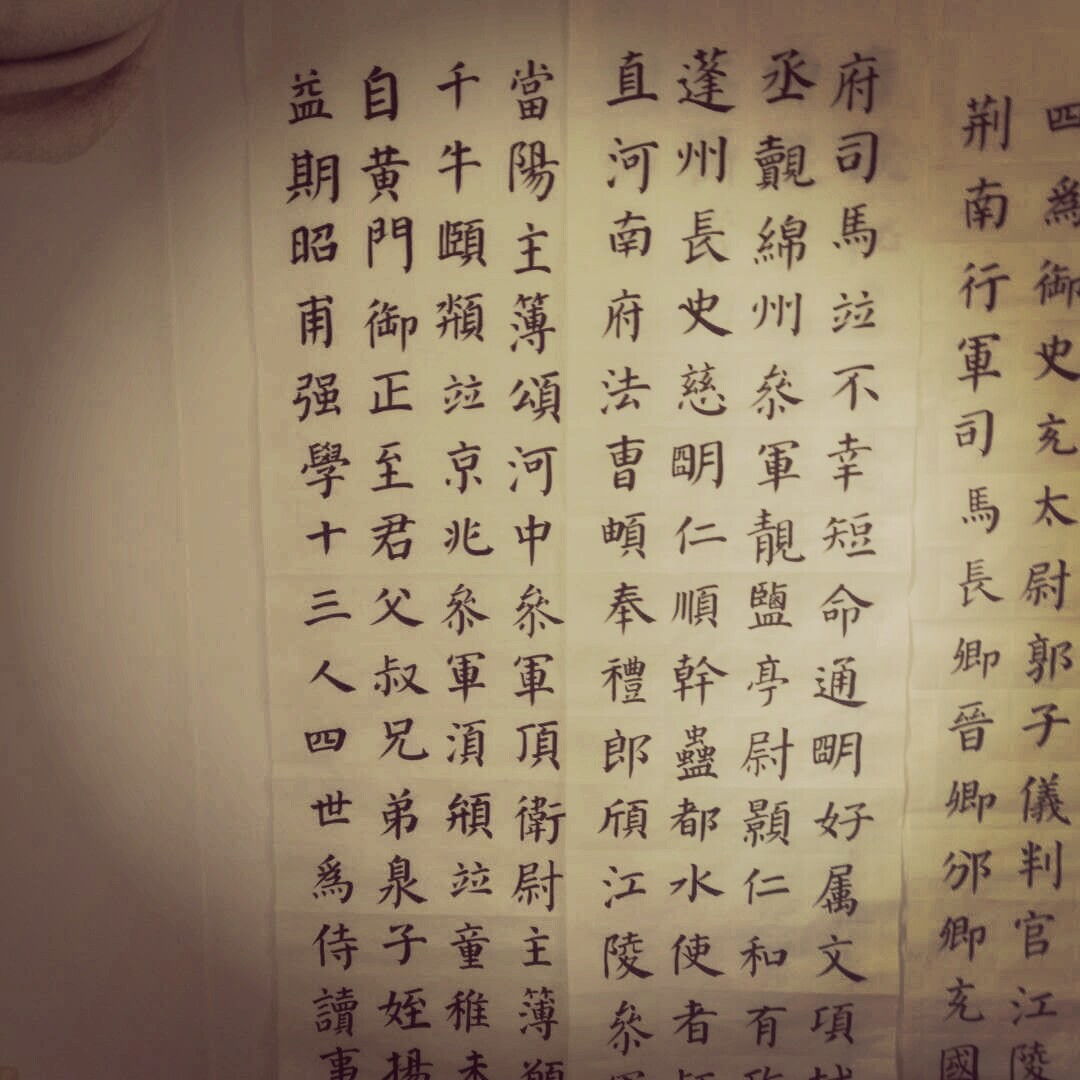 四爲御史充太尉郭子儀判官江陵
荆南行軍司馬長卿晉卿邠卿充國
府司馬竝不幸短命通明好属文項
丞覿綿州叅軍靚鹽亭尉顥仁和有
蓬州長史慈明仁順幹蠱都水使者
直河南府法曹頔奉禮郎頎江陵叅
當陽主簿頌河中叅軍頂衛尉主簿
千牛頤頖竝京兆叅軍湏頍竝童稚未
自黄門御正至君父叔兄弟臮子姪揚
益期昭甫强學十三人四世爲侍讀事